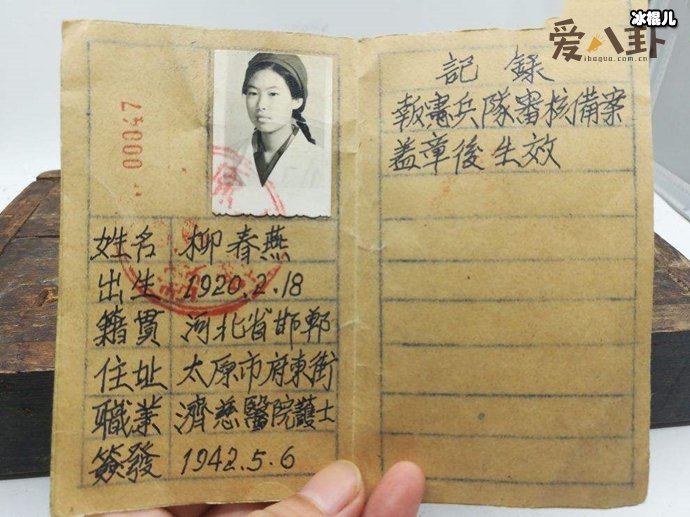 冰棍儿
爱八卦
ibagua.com.cn
00047
姓名 柳春燕
出生 1920.2.18
籍貫 河北省邯鄲
住址 太原市府東街
職業 濟慈醫院護士
簽發 1942.5.6
記録
報憲兵隊審核備案
盖章後生效